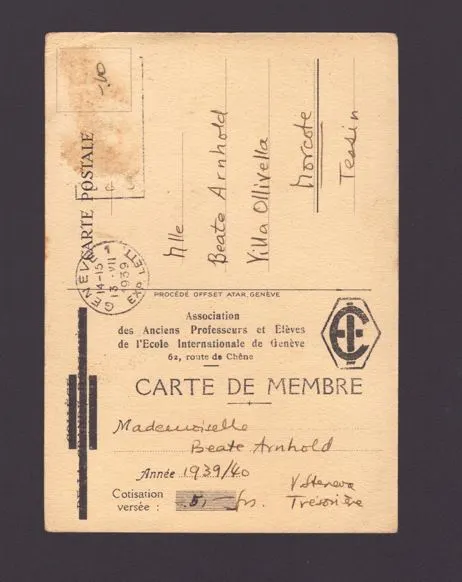 CARTE POSTALE
GENEVE 1
14-15
13.VII
1939
EXP. LETT.
Mlle
Beate Arnhold
Villa Ollivella
Morcote
Tessin
PROCÉDÉ OFFSET ATAR, GENÈVE
Association
des Anciens Professeurs et Élèves
de l'Ecole Internationale de Genève
62, route de Chêne
CARTE DE MEMBRE
Mademoiselle
Beate Arnhold
Année 1939/40
Cotisation
versée : 5,- frs.
Trésorière